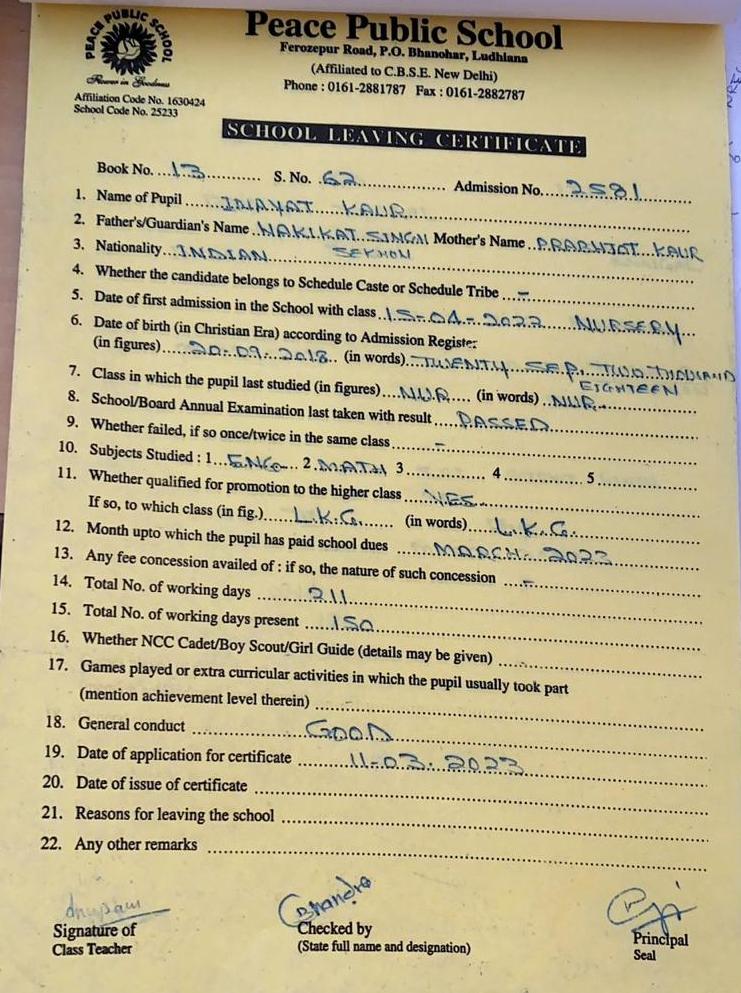 PEACE PUBLIC SCHOOL
Flower in Goodness
Affiliation Code No. 1630424
School Code No. 25233
Peace Public School
Ferozepur Road, P.O. Bhanohar, Ludhiana
(Affiliated to C.B.S.E. New Delhi)
Phone : 0161-2881787 Fax : 0161-2882787
SCHOOL LEAVING CERTIFICATE
Book No. 13 S. No. 62 Admission No. 2581
1. Name of Pupil INAYAT KAUR
2. Father's/Guardian's Name HAKIKAT SINGH SEKHON Mother's Name PRABHJOT KAUR
3. Nationality INDIAN
4. Whether the candidate belongs to Schedule Caste or Schedule Tribe –
5. Date of first admission in the School with class 15-04-2022 NURSERY
6. Date of birth (in Christian Era) according to Admission Register
(in figures) 20-09-2018 (in words) TWENTY SEP. TWO THOUSAND EIGHTEEN
7. Class in which the pupil last studied (in figures) NUR (in words) NUR
8. School/Board Annual Examination last taken with result PASSED
9. Whether failed, if so once/twice in the same class –
10. Subjects Studied : 1 ENG 2 MATH 3 4 5
11. Whether qualified for promotion to the higher class YES
If so, to which class (in fig.) L.K.G. (in words) L.K.G.
12. Month upto which the pupil has paid school dues MARCH-2023
13. Any fee concession availed of : if so, the nature of such concession –
14. Total No. of working days 211
15. Total No. of working days present 150
16. Whether NCC Cadet/Boy Scout/Girl Guide (details may be given)
17. Games played or extra curricular activities in which the pupil usually took part
(mention achievement level therein) –
18. General conduct GOOD
19. Date of application for certificate 11-03-2023
20. Date of issue of certificate
21. Reasons for leaving the school
22. Any other remarks
Anupam
Signature of
Class Teacher
Chandra
Checked by
(State full name and designation)
Principal
Seal